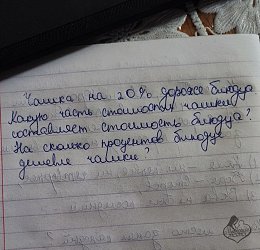 Чашка на 20% дороже блюдца
Какую часть стоимости чашки
составляет стоимость блюдца?
На сколько процентов блюдце
дешевле чашки?